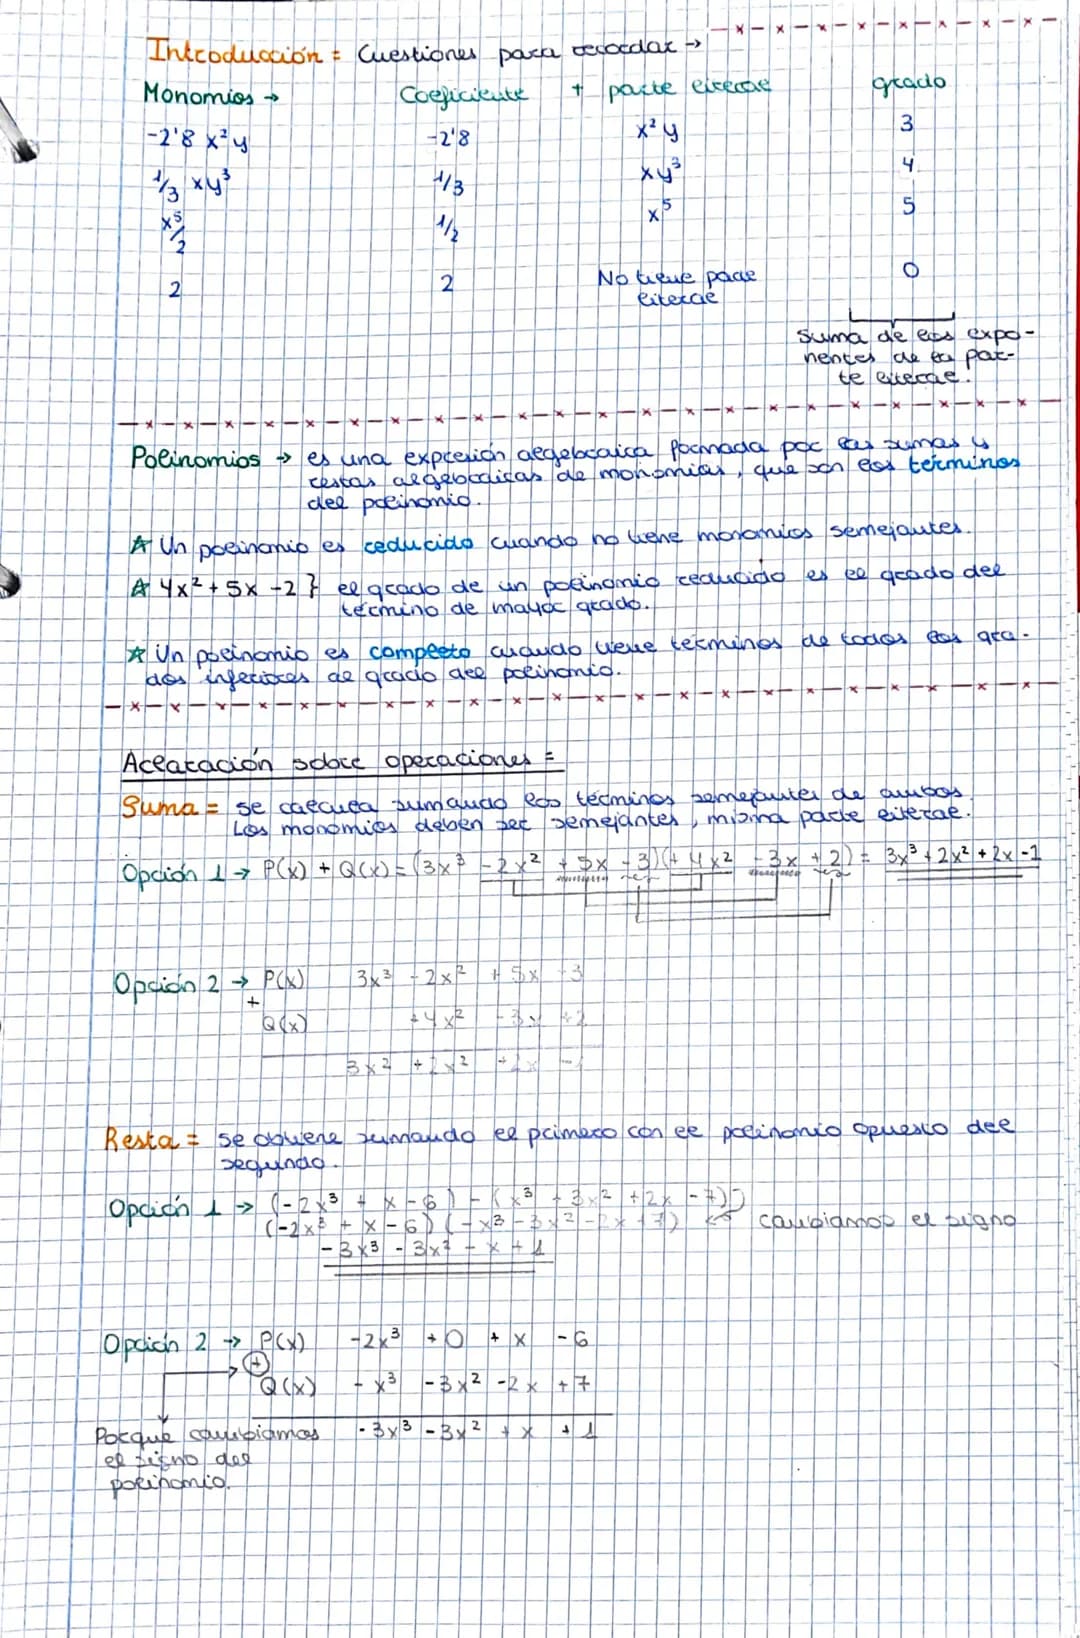 Introducción = Cuestiones para recordar →
Monomios → Coeficiente + parte literal grado
-2'8 x² y -2'8 x² y 3
1/3 xy³ 1/3 xy³ 4
x⁵/2 1/2 x⁵ 5
2 2 No tiene parte literal 0
Suma de los expo-
nentes de la par-
te literal.
Polinomios → es una expresión algebraica formada por las sumas y
restas algebraicas de monomios, que son los términos
del polinomio.
☆ Un polinomio es reducido cuando no tiene monomios semejantes.
☆ 4x² + 5x - 2 } el grado de un polinomio reducido es el grado del
término de mayor grado.
☆ Un polinomio es completo cuando tiene términos de todos los gra-
dos inferiores al grado del polinomio.
Aclaración sobre operaciones =
Suma = se calcula sumando los términos semejantes de ambos.
Los monomios deben ser semejantes, misma parte literal.
Opción 1 → P(x) + Q(x) = (3x³ - 2x² + 5x - 3)(+ 4x² - 3x + 2) = 3x³ + 2x² + 2x - 1
Opción 2 → P(x) 3x³ - 2x² + 5x - 3
+
Q(x) + 4x² - 3x + 2
3x² + 2x² + 2x - 1
Resta = se obtiene sumando el primero con el polinomio opuesto del
segundo.
Opción 1 → (-2x³ + x - 6) - (x³ + 3x² + 2x - 7)
(-2x³ + x - 6) (-x³ - 3x² - 2x + 7) cambiamos el signo
- 3x³ - 3x² - x + 1
Opción 2 → P(x) -2x³ + 0 + x - 6
+
Q(x) - x³ - 3x² - 2x + 7
- 3x³ - 3x² + x + 1
Porque cambiamos
el signo del
polinomio.